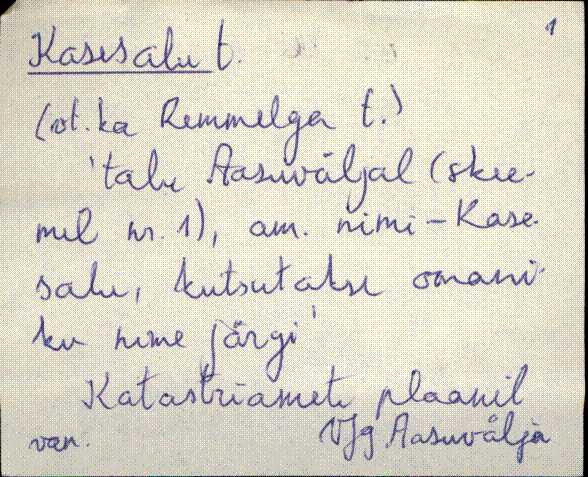 1
Kasesalu t.
(vt. ka Remmelga t.)
'talu Aasuväljal (skee-
mil nr. 1), am. nimi - Kase-
salu, kutsutakse omani-
ku nime järgi'
Katastriameti plaanil
van. VJg Aasuvälja